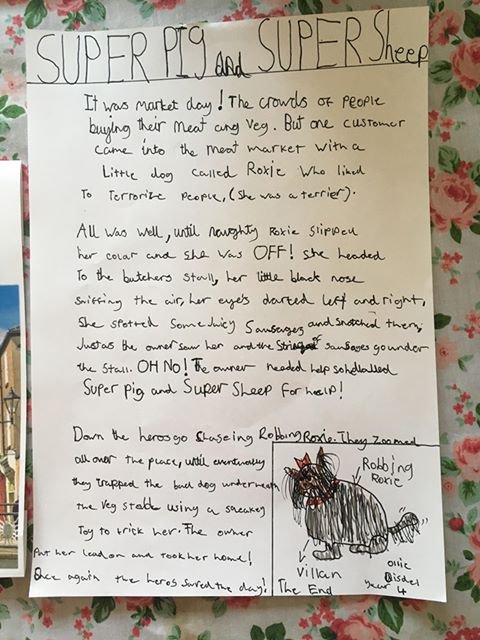 SUPER PIG and SUPER Sheep
It was market day! The crowds of people
buying their meat and veg. But one customer
came into the meat market with a
Little dog called Roxie who liked
To Terrorize people, (she was a terrier).
All was well, until naughty Roxie slipped
her colar and she was OFF! she headed
To the butchers stall, her little black nose
sniffing the air, her eye's darted left and right,
She spotted some juicy sausages and snatched them,
Just as the owner saw her and the string of sausages go under
the stall. OH NO! The owner needed help so he called
Super pig and Super Sheep for help!
Down the heros go chaseing Robbing Roxie. They zoomed
all over the place, until eventually
they trapped the bad dog underneath
the veg stall using a squeaky
Toy to trick her. The owner
Put her lead on and took her home!
Once again the heros saved the day!
Robbing
Roxie
Villan
The End
Ollie
Disdel
year 4